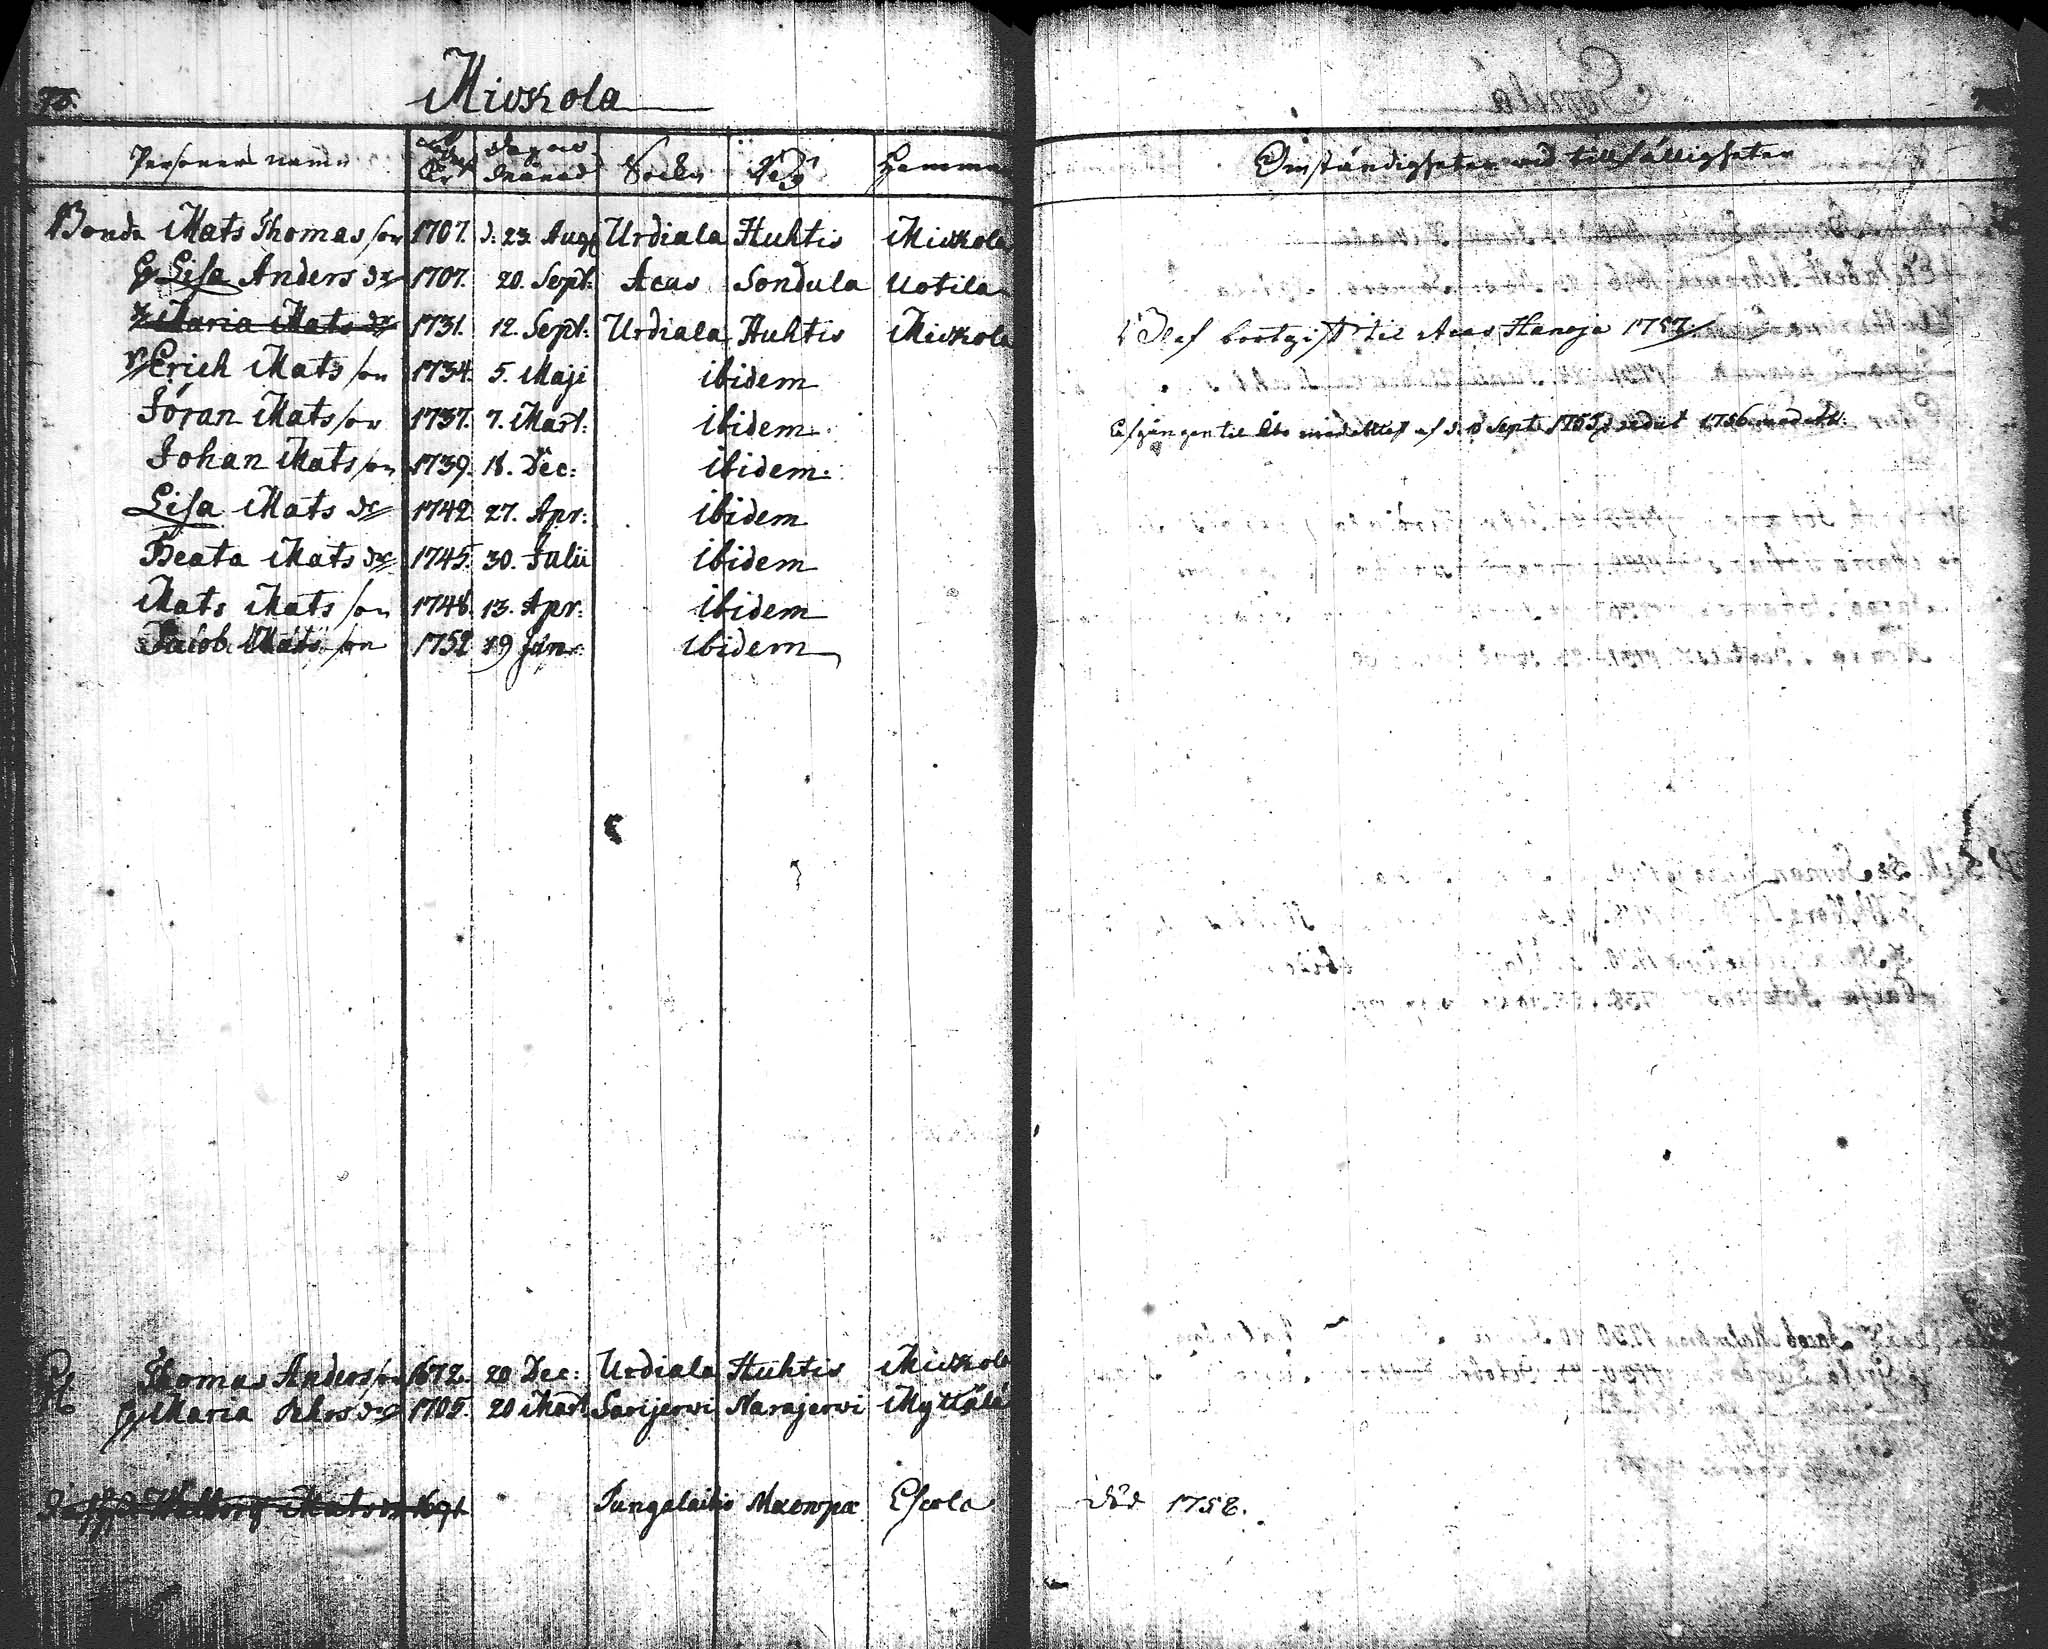 Mivskola
Personers namn Födelse År Dag och Månad Sokn By Hemman
Omständigheter vid tillfälligheter
Bonda Mats Thomas son 1707. d. 23. Aug Urdiala Huhtis Mivskola
Lisa Anders dr 1707. 20. Sept: Acas Sondula Uotila
Maria Mats dr 1731. 12. Sept: Urdiala Huhtis Mivskola
bortgift til Acas Hanoja 1757.
Erich Mats son 1734. 5. Maji ibidem
Jöran Mats son 1737. 7. Mart: ibidem.
til Åbo med attest af d. Sept: 1755, redit 1756 med att:
Johan Mats son 1739. 18. Dec: ibidem.
Lisa Mats dr 1742 27. Apr: ibidem
Beata Mats dr 1745. 30. Julii ibidem
Mats Mats son 1748. 13. Apr: ibidem
Jacob Mats son 1752 19 Jan: ibidem
Thomas Anders son 1672. 20 Dec: Urdiala Huhtis Mivskola
Maria dr 1705. 20 Mart Sarijerwi Narajerwi Myttälä
Walborg Mats dr 1691. Pungalaitio Maenpæ Escola
död 1758.